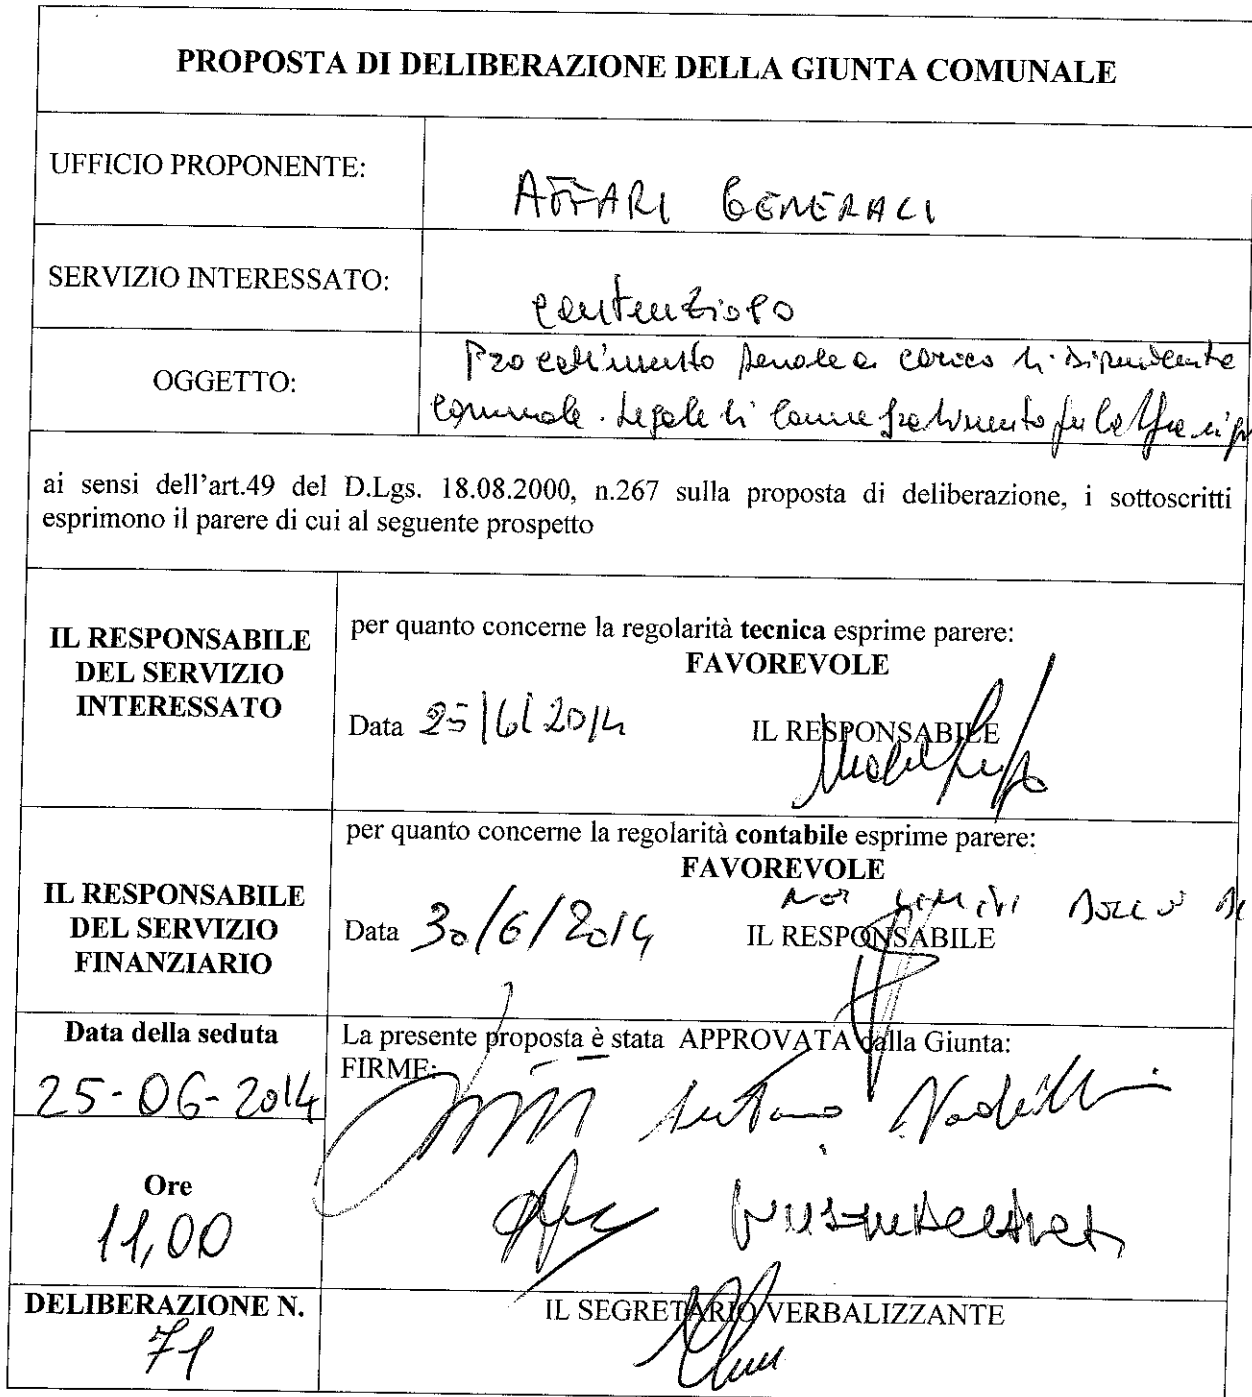 PROPOSTA DI DELIBERAZIONE DELLA GIUNTA COMUNALE
UFFICIO PROPONENTE:
AFFARI GENERALI
SERVIZIO INTERESSATO:
contenzioso
OGGETTO:
Procedimento penale a carico di dipendente
comunale. Legale di comune gradimento
ai sensi dell'art.49 del D.Lgs. 18.08.2000, n.267 sulla proposta di deliberazione, i sottoscritti
esprimono il parere di cui al seguente prospetto
IL RESPONSABILE
DEL SERVIZIO
INTERESSATO
per quanto concerne la regolarità tecnica esprime parere:
FAVOREVOLE
Data 25/6/2014 IL RESPONSABILE
IL RESPONSABILE
DEL SERVIZIO
FINANZIARIO
per quanto concerne la regolarità contabile esprime parere:
FAVOREVOLE
Data 30/6/2014 IL RESPONSABILE
Data della seduta
25-06-2014
Ore
11,00
La presente proposta è stata APPROVATA dalla Giunta:
FIRME:
DELIBERAZIONE N.
71
IL SEGRETARIO VERBALIZZANTE